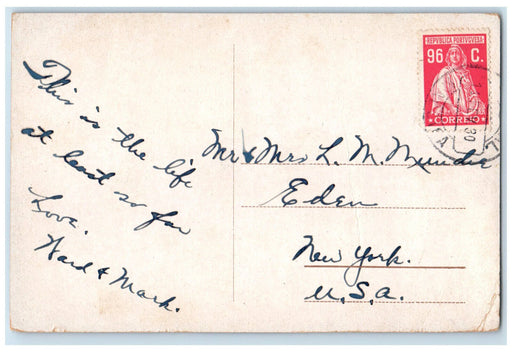 This is the life
at least so far
Love.
Ward & Mark.
REPUBLICA PORTUGUESA
96 C.
CORREIO
Mr & Mrs L. M. Mundie
Eden
New York.
U.S.a.